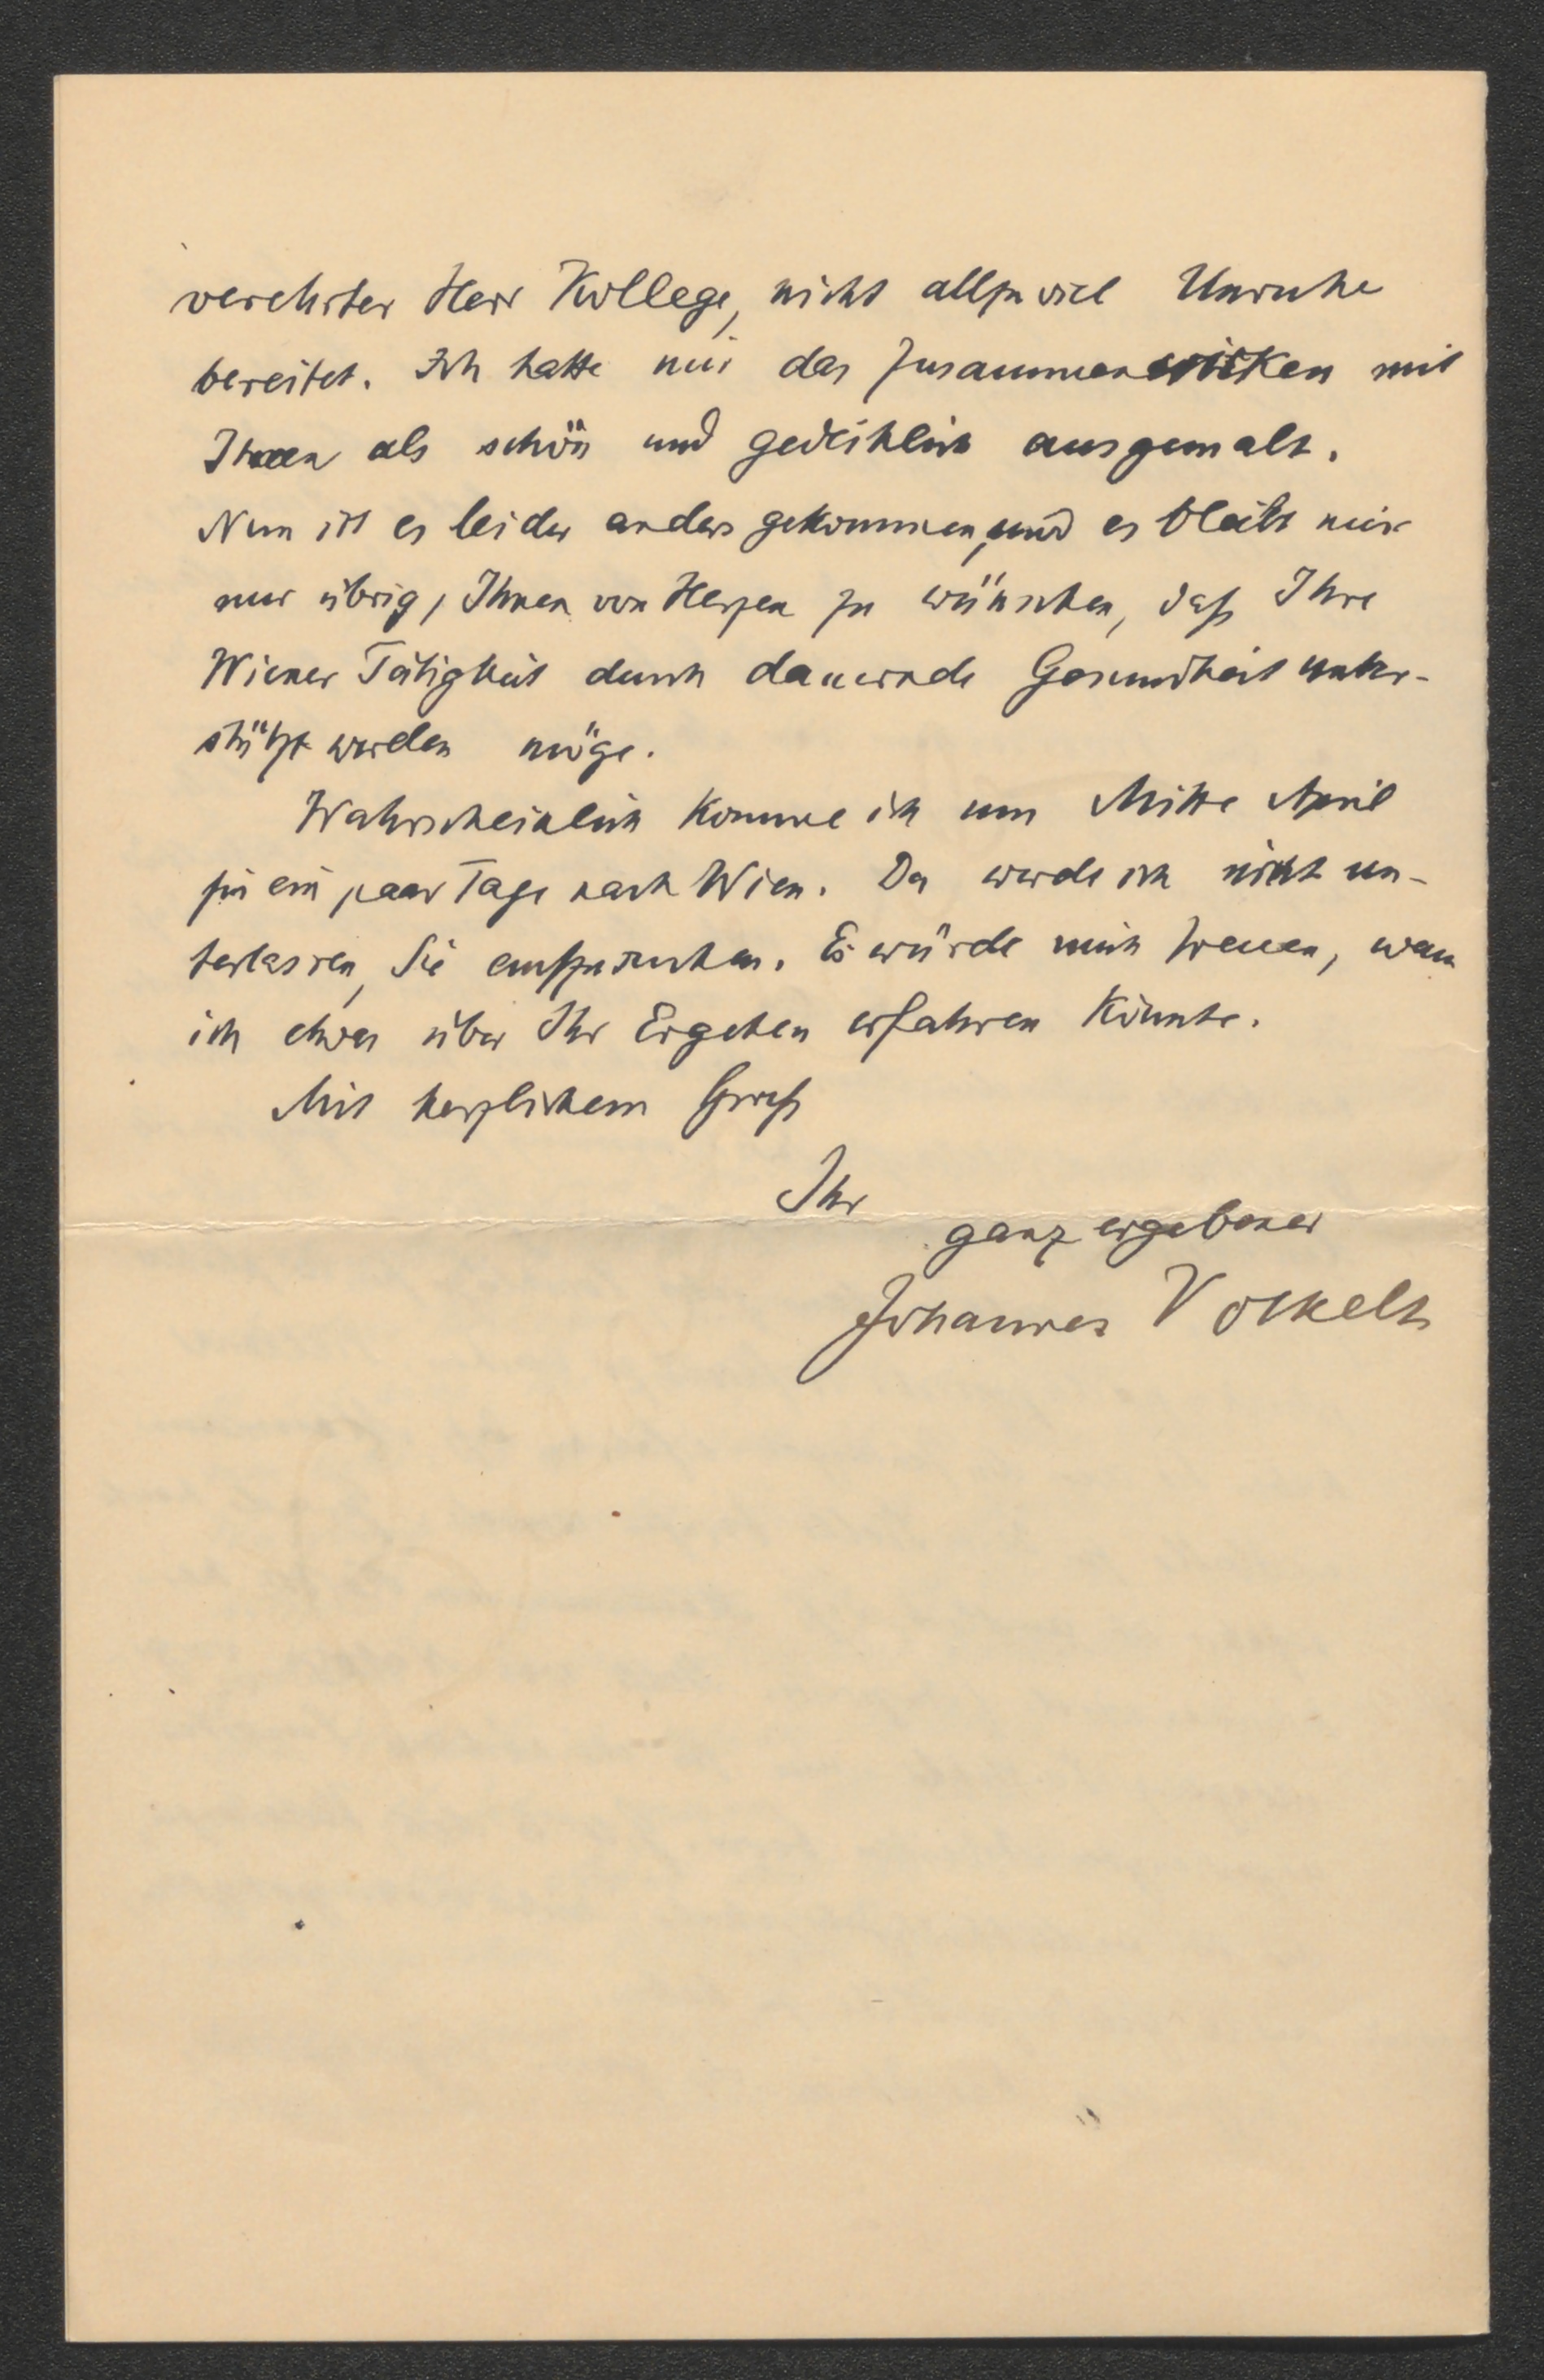 verehrter Herr Kollege, nicht allzuviel Unruhe
bereitet. Ich hatte mir das Zusammenwirken mit
Ihnen als schön und gedeihlich ausgemalt.
Nun ist es leider anders gekommen, und es bleibt mir
nur übrig, Ihnen von Herzen zu wünschen, daß Ihre
Wiener Tätigkeit durch dauernde Gesundheit unter-
stützt werden möge.
Wahrscheinlich komme ich um Mitte April
für ein paar Tage nach Wien. Da werde ich nicht un-
terlassen, Sie aufzusuchen. Es würde mich freuen, wenn
ich etwas über Ihr Ergehen erfahren könnte.
Mit herzlichem Gruß
Ihr
ganz ergebener
Johannes Volkelt